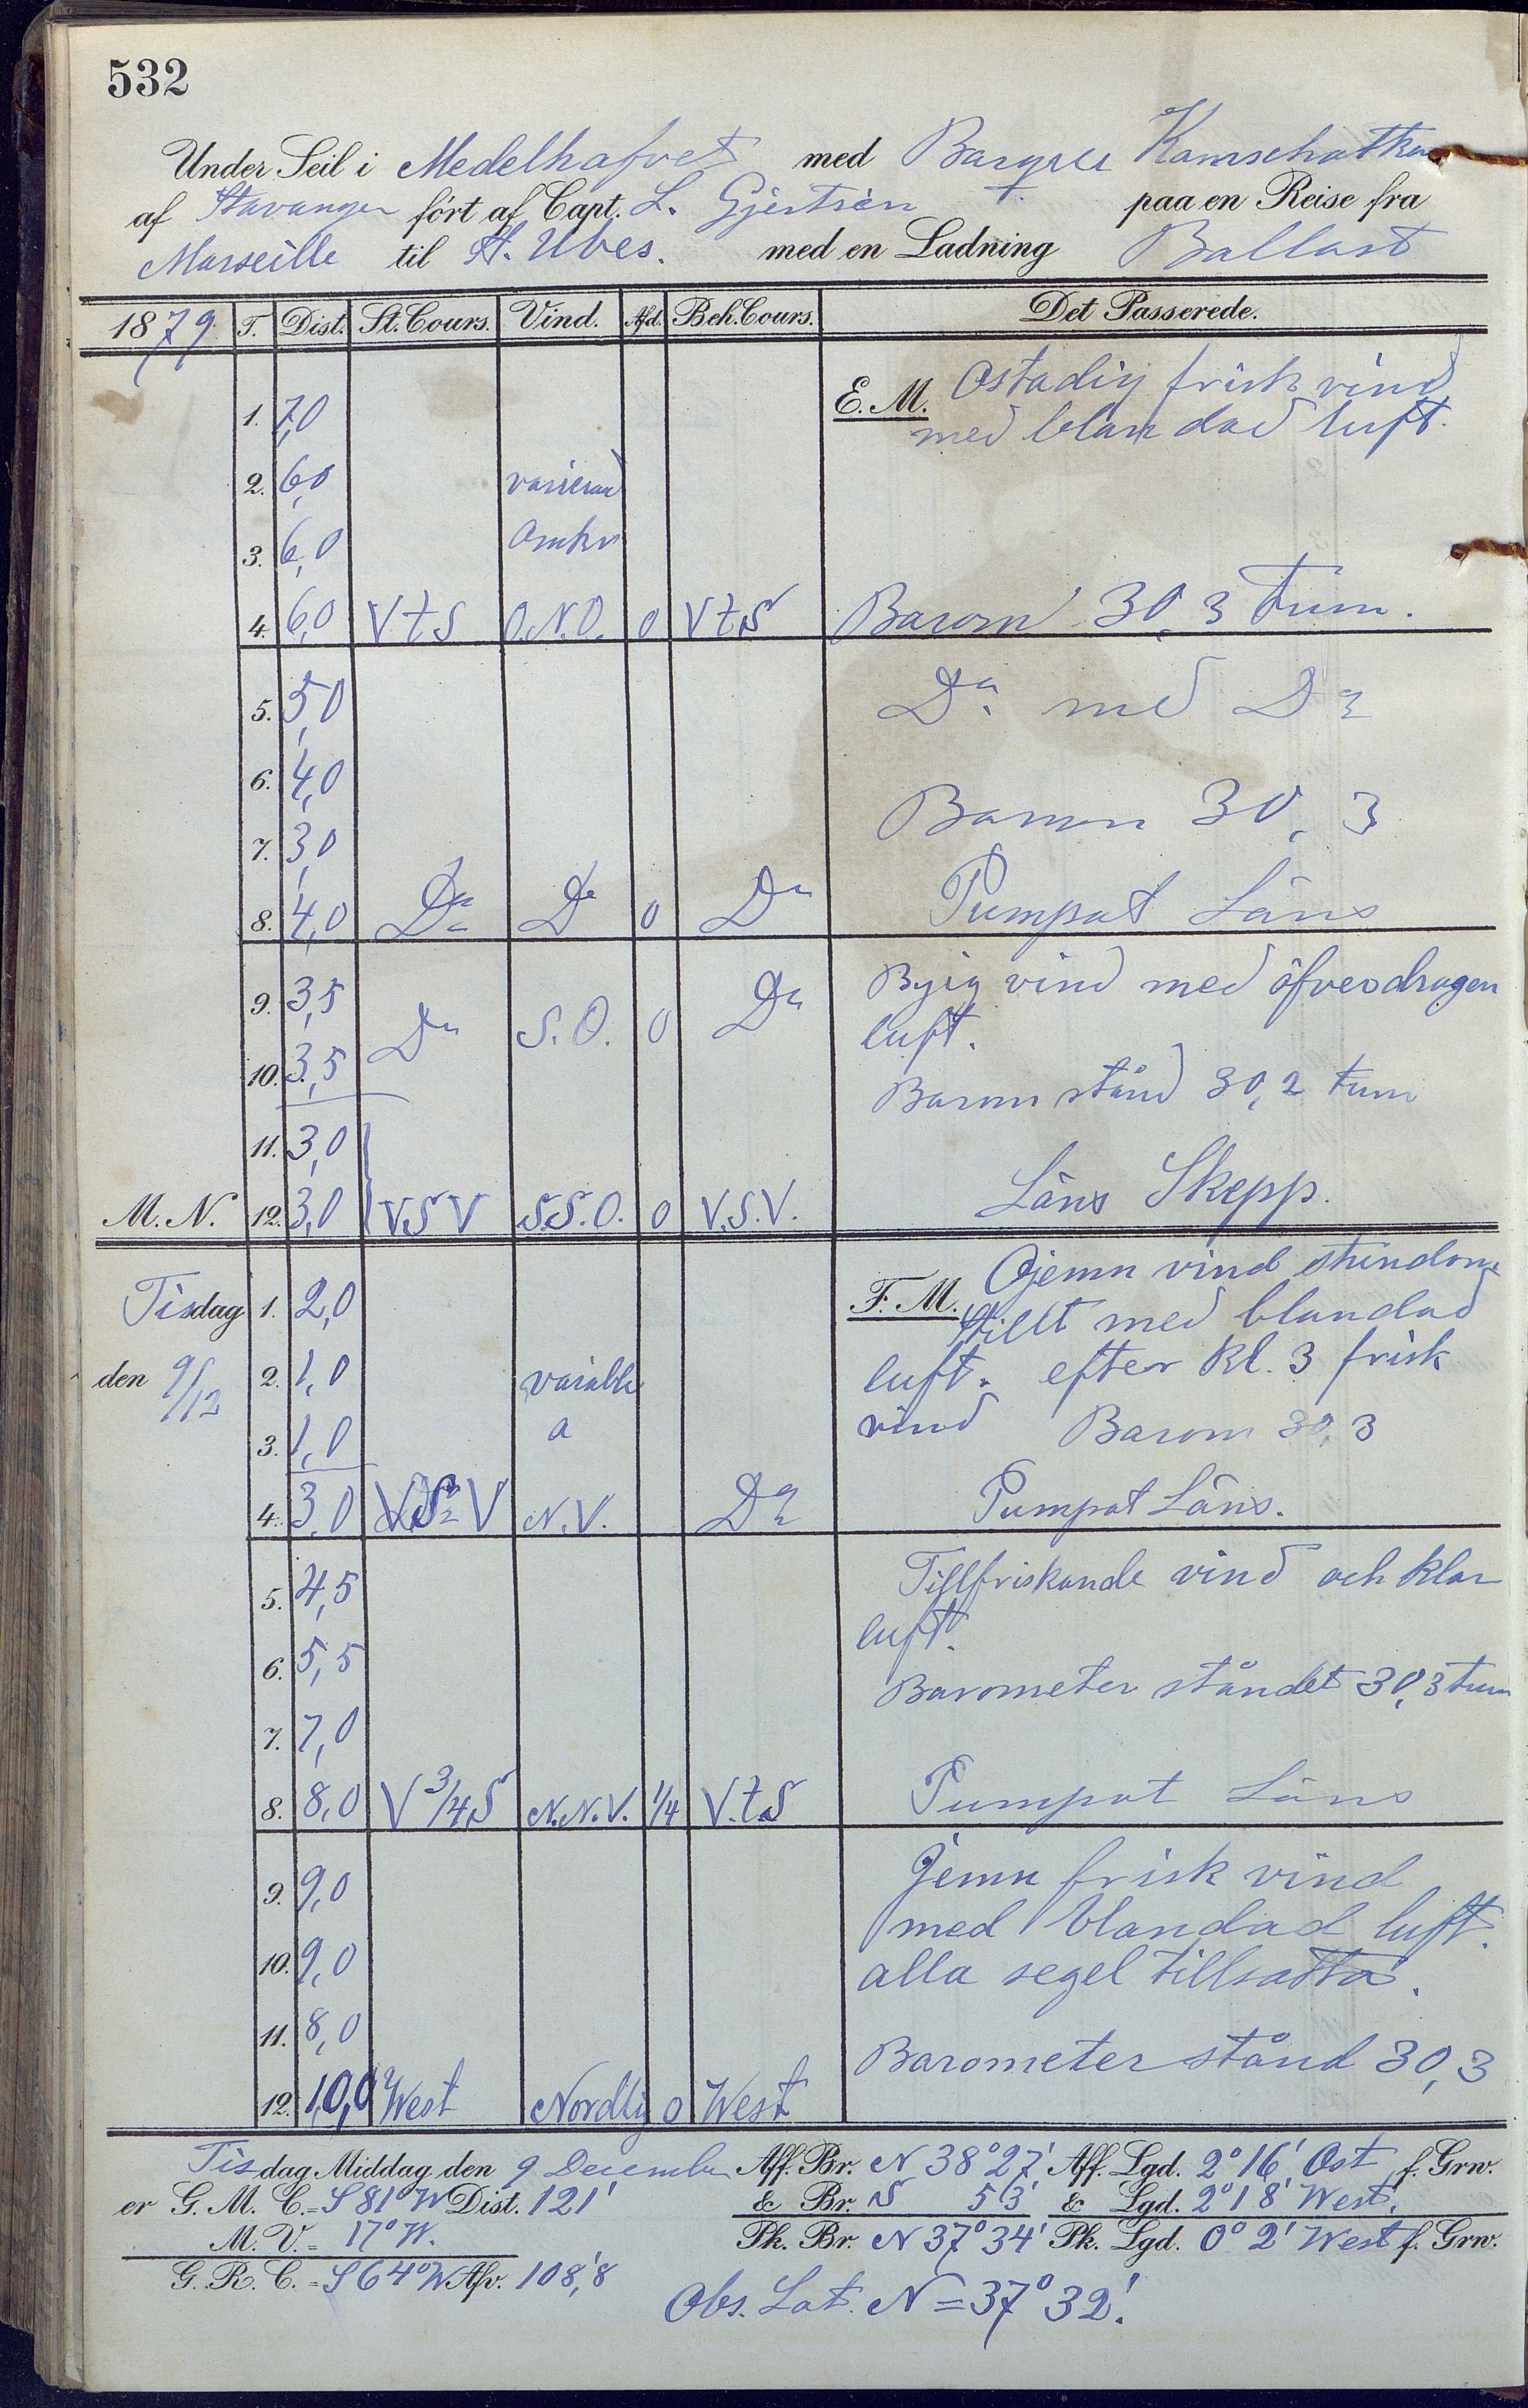 532
Under Seil i Medelhafvet med Barque Kamschatka
af Stavanger ført af Capt. L. Gjertsen paa en Reise fra
Marseille til St. Ubes. med en Ladning Ballast
1879. T. Dist. St. Cours. Vind. Afd. Beh. Cours. Det Passerede.
E. M. Ostadig frisk vind
1. 7,0 med blandad luft.
2. 6,0 varierad
3. 6,0 omkr
4. 6,0 V t S O.N.O. 0 V t S Barom 30,3 Tum.
5. 5,0 Do med Do
6. 4,0
7. 3,0 Barom 30,3
8. 4,0 Do Do 0 Do Pumpat Läns
9. 3,5 Do S.O. 0 Do Byig vind med öfverdragen
luft.
10. 3,5 Barom stånd 30,2 tum
11. 3,0
M. N. 12. 3,0 V S V S.S.O. 0 V.S.V. Läns Skepp.
F. M. Ojemn vind stundom
Tisdag 1. 2,0 stillt med blandad
den 9/12 2. 1,0 variabla luft. efter kl. 3 frisk
3. 1,0 a vind Barom 30,3
4. 3,0 V S V N.V. Do Pumpat Läns.
5. 4,5 Tillfriskande vind och klar
luft.
6. 5,5 Barometer ståndet 30,3 tum
7. 7,0
8. 8,0 V 3/4 S N.N.V. 1/4 V.t.S Pumpat Läns
9. 9,0 Jemn frisk vind
med blandad luft.
10. 9,0 alla segel tillsatta.
11. 8,0 Barometer stånd 30,3
12. 10,0 West Nordlig 0 West
Tisdag Middag den 9 December Aff. Br. N 38° 27' Aff. Lgd. 2° 16' Ost f. Grw.
er G. M. C. = S 81° W Dist. 121' & Br. S 53' & Lgd. 2° 18' West.
M. V. = 17° W. Pk. Br. N 37° 34' Pk. Lgd. 0° 2' West f. Grw.
G. R. C. = S 64° W Afv. 108,'8
Obs. Lat. N = 37° 32'.